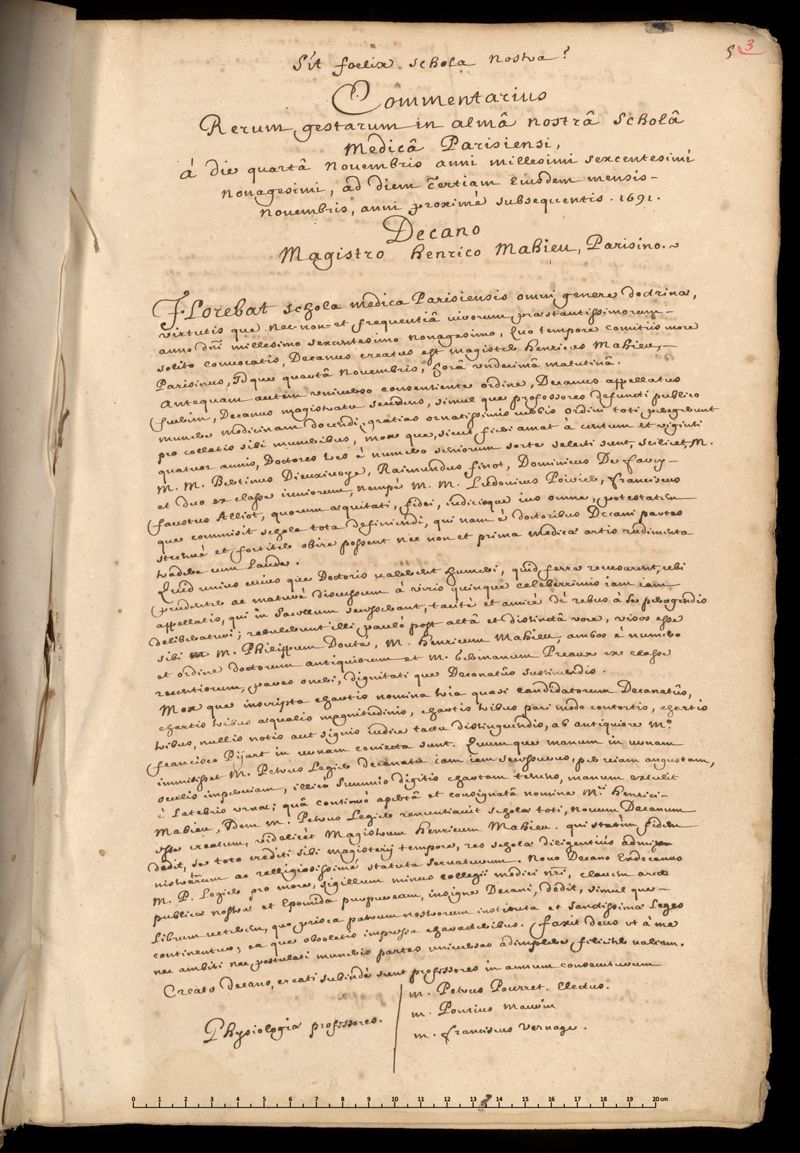 5 3
Sit foelix schola nostra!
Commentarius
Rerum gestarum in almâ nostrâ Scholâ
Medicâ Parisiensi,
á die quartâ Novembris anni millesimi sexcentesimi
nonagesimi, ad diem tertiam Eiusdem mensis
Novembris, anni proxime subsequentis. 1691.
Decano
Magistro henrico Mahieu, Parisino.
FLorebat schola medica Parisiensis omni genere doctrinæ,
virtutis que nec non et frequentiâ virorum præstantissimorum
anno dñi millesimo sexcentesimo nonagesimo, Quo tempore comitiis more
solito convocatis, Decanus creatus est magister henricus Mahieu,
Parisinus, Idque quartâ Novembris, horâ undecimâ matutinâ.
Antequam autem universo consentiente ordine, Decanus appellatus
fuerim, Decanus magistratu secedens, simul que professores defuncti publico
munere medicinam docendi, gratias ornatissimis verbis ordini toti
pro collatis sibi muneribus, mox que, sicut fieri amat à centum et viginti
quatuor annis, Doctores tres è numero seniorum sorte selecti sunt, scilicet, M.
M. M. Bertinus Dieuxivoye, Raimundus finot, Dominicus De Farcy
et duo ex classe iuniorum, nempè M. M. Ludovicus Poirier, franciscus
faustus Alliot, quorum æquitati, fidei, iudicioque ius omne, potestatem
que commisit schola tota definiendi, qui nam è doctoribus Decani partes
strenuè et fortiter obire possent nec non et prima medicæ artis rudimenta
tradere cum laude.
Quid unius cuius que Doctoris valerent humeri, quid ferre recusarent, ubi
prudenter ac maturè discussum à viris quinque celeberrimis iam iam
appellatis, qui in Sacellum secesserant, tacitè et amicè de rebus à se peragendis
deliberaturi; retulerunt illi paulò post altâ et distinctâ voce, visos esse
sibi M. M. Philippum Douté, M. henricum Mahieu, ambos è numero
et ordine doctorum antiquiorum et M. Preaux ex classe
recentiorum, pares oneri, dignitati que Decanatûs sustinendis.
Mox que inscripta chartis nomina tria quasi candidatorum Decanatûs,
chartis tribus æqualis magnitudinis, chartis tribus pari modo contortis, chartis
tribus, nullis notis aut signis iudice tactu distinguendis, ab antiquiore M.º
francisco Pijart in urnam coniecta sunt. Quum que manum in urnam
immisisset M. Petrus Legier decanatu iam iam secessurus, per viam angustam,
oculis imperviam, illicò summis digitis chartam tenens, manum extulit
è latebris urnæ; quâ continuò apertâ et consignatâ nomine M.ri Henrici
Mahieu, Idem M. Petrus Legier renuntiavit scholæ toti, novum Decanum
esse creatum, videlicèt Magistrum henricum Mahieu. qui statim fidem
dedit, se toto crediti sibi magisterij tempore, res scholæ diligentius admi-
nistraturum ac relligiosissimè statuta servaturum. Novo Decano Exdecanus
M. P. Legier pro more, sigillum minus collegii medici nri, clavem arcæ
publicæ nostræ et Epomida purpuream, insigne Decani, dedit, simul que
Librum veterem, quo prisca patrum nostrorum instituta et sanctissimæ Leges
continentur; ea que obsoletis impressa characteribus. Faxit deus ut à me
nec ambiti nec postulati muneris partes universas adimplere feliciter valeam.
Creato decano, creati subindè sunt professores in annum consecuturum
Physiologiæ professores.
M. Petrus Pourret. Electus.
M. Pontius Mauvin
M. franciscus Vernage.
0 1 2 3 4 5 6 7 8 9 10 11 12 13 14 15 16 17 18 19 20 cm